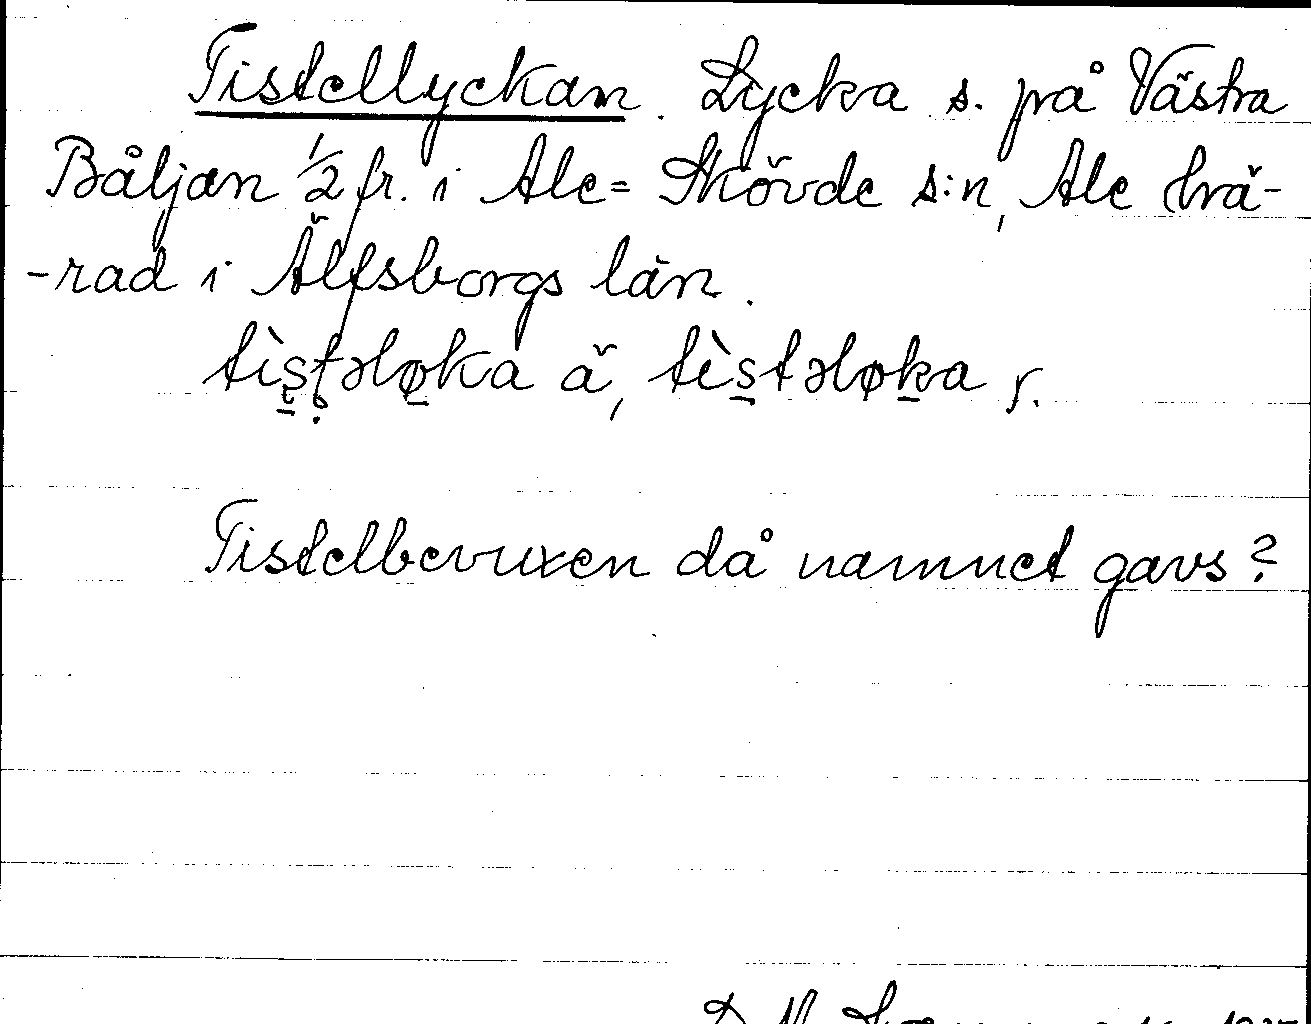 Tistellyckan. Lycka s. på Västra
Båljan 1/2 fr. i Ale-Skövde s:n, Ale hä-
-rad i Älfsborgs län.
tìstəløka ä, tìstəløka y.
Tistelbevuxen då namnet gavs?